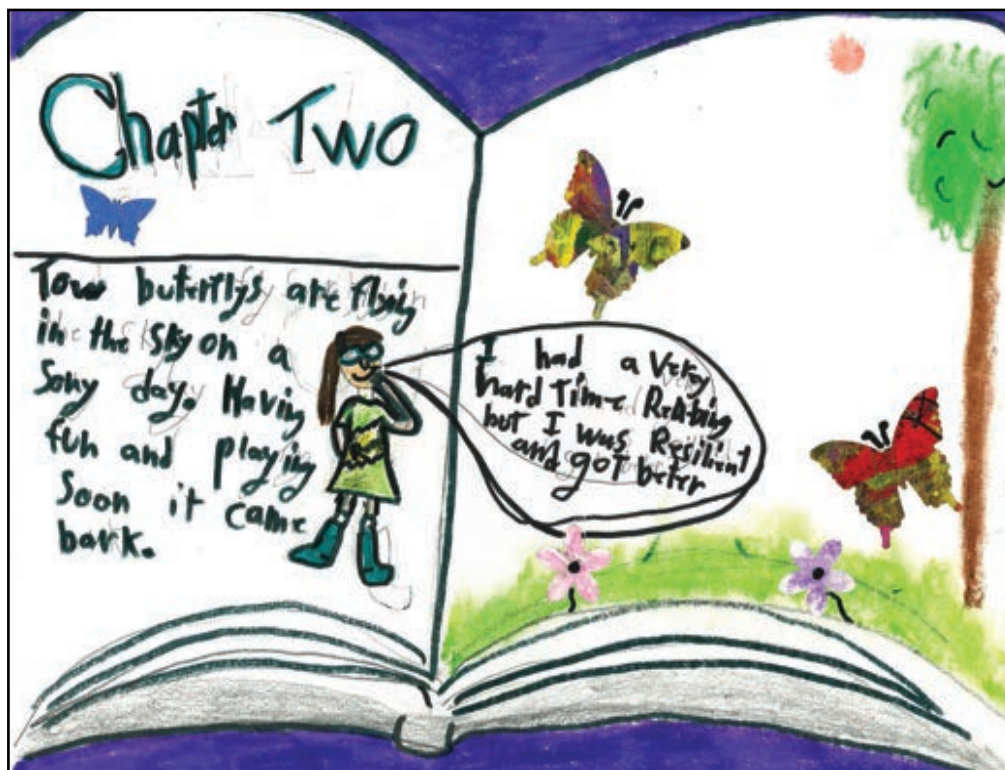 Chapter Two
Tow buterflys are flying
in the sky on a
Sony day. Having
fun and playing
Soon it came
bark.
I had a very
hard time Reating
but I was Resilient
and got beter